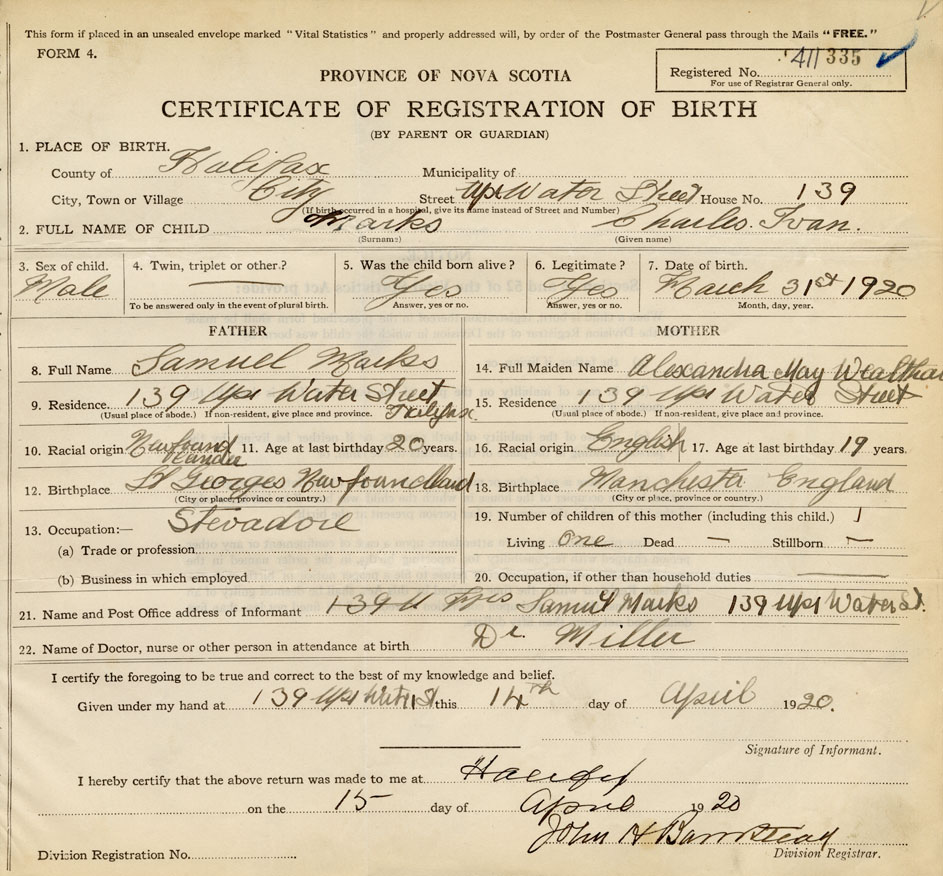 This form if placed in an unsealed envelope marked "Vital Statistics" and properly addressed will, by order of the Postmaster General pass through the Mails "FREE."
FORM 4.
Registered No. 411335
For use of Registrar General only.
PROVINCE OF NOVA SCOTIA
CERTIFICATE OF REGISTRATION OF BIRTH
(BY PARENT OR GUARDIAN)
1. PLACE OF BIRTH.
County of Halifax Municipality of
City, Town or Village City Street Upr Water Street House No. 139
(If birth occurred in a hospital, give its name instead of Street and Number)
2. FULL NAME OF CHILD Marks Charles. Ivan.
(Surname) (Given name)
3. Sex of child. 4. Twin, triplet or other? 5. Was the child born alive? 6. Legitimate? 7. Date of birth.
Male — Yes Yes March 31st 1920
To be answered only in the event of plural birth. Answer, yes or no. Answer, yes or no. Month, day, year.
FATHER MOTHER
8. Full Name Samuel Marks
9. Residence. 139 Upr Water Street Halifax
(Usual place of abode.) If non-resident, give place and province.
10. Racial origin Newfoundlander 11. Age at last birthday 20 years.
12. Birthplace St Georges Newfoundland
(City or place, province or country.)
13. Occupation:— Stevadore
(a) Trade or profession
(b) Business in which employed
14. Full Maiden Name Alexandra May
15. Residence 139 Upr Water Street
(Usual place of abode.) If non-resident, give place and province.
16. Racial origin English 17. Age at last birthday 19 years.
18. Birthplace Manchester England
(City or place, province or country.)
19. Number of children of this mother (including this child.) 1
Living one Dead — Stillborn —
20. Occupation, if other than household duties —
21. Name and Post Office address of Informant 139 U Samuel Marks 139 Upr Water St.
22. Name of Doctor, nurse or other person in attendance at birth Dr Miller
I certify the foregoing to be true and correct to the best of my knowledge and belief.
Given under my hand at 139 Upr Water St this 14th day of April 1920.
Signature of Informant.
I hereby certify that the above return was made to me at Halifax
on the 15 day of April 1920
John H Barnstead
Division Registration No. Division Registrar.